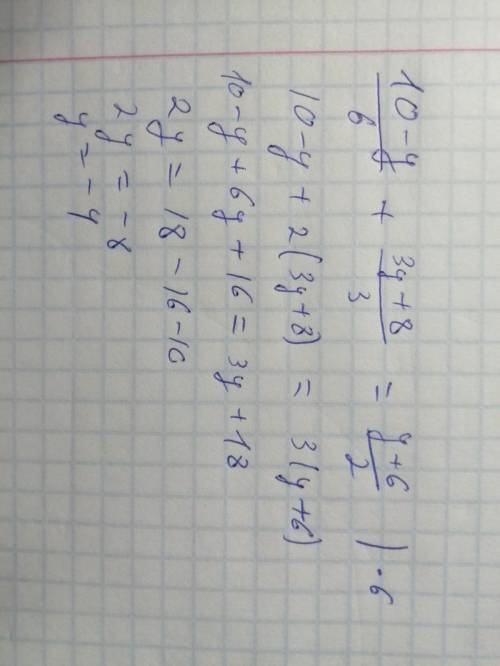 (10-y)/6 + (3y+8)/3 = (y+6)/2 | · 6
10-y+2(3y+8) = 3(y+6)
10-y+6y+16 = 3y+18
2y = 18-16-10
2y = -8
y = -4